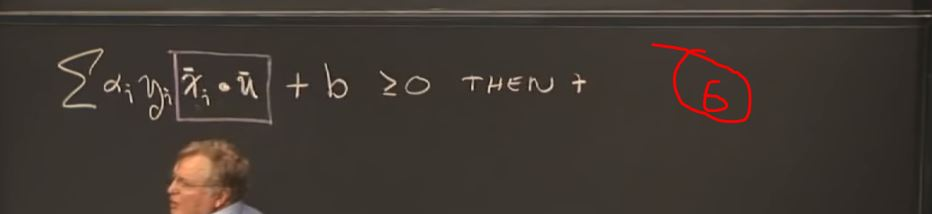 ∑αᵢyᵢ x̄ᵢ • ū + b ≥0 THEN + 6